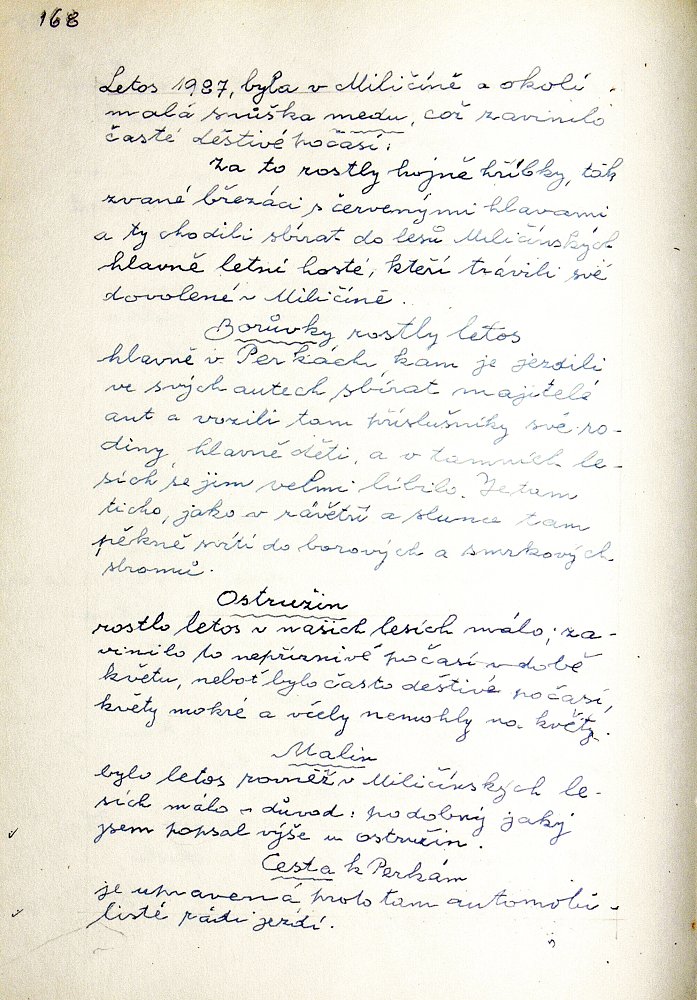 168
Letos 1987, byla v Miličíně a okolí
malá snůška medu, což zavinilo
časté deštivé počasí.
Za to rostly hojně hříbky, tak
zvané březáci s červenými hlavami
a ty chodili sbírat do lesů Miličínských
hlavně letní hosté, kteří trávili své
dovolené v Miličíně.
Borůvky rostly letos
hlavně v Perkách, kam je jezdili
ve svých autech sbírat majitelé
aut a vozili tam příslušníky své ro-
diny, hlavně děti, a v tamních le-
sích se jim velmi líbilo. Je tam
ticho, jako v závětří a slunce tam
pěkně svítí do borových a smrkových
stromů.
Ostružin
rostlo letos v našich lesích málo; za-
vinilo to nepříznivé počasí v době
květu, neboť bylo často deštivé počasí,
květy mokré a včely nemohly na květy.
Malin
bylo letos rovněž v Miličínských le-
sích málo - důvod: podobný jaký
jsem popsal výše u ostružin.
Cesta k Perkám
je upravená proto tam automobi-
listé rádi jezdí.